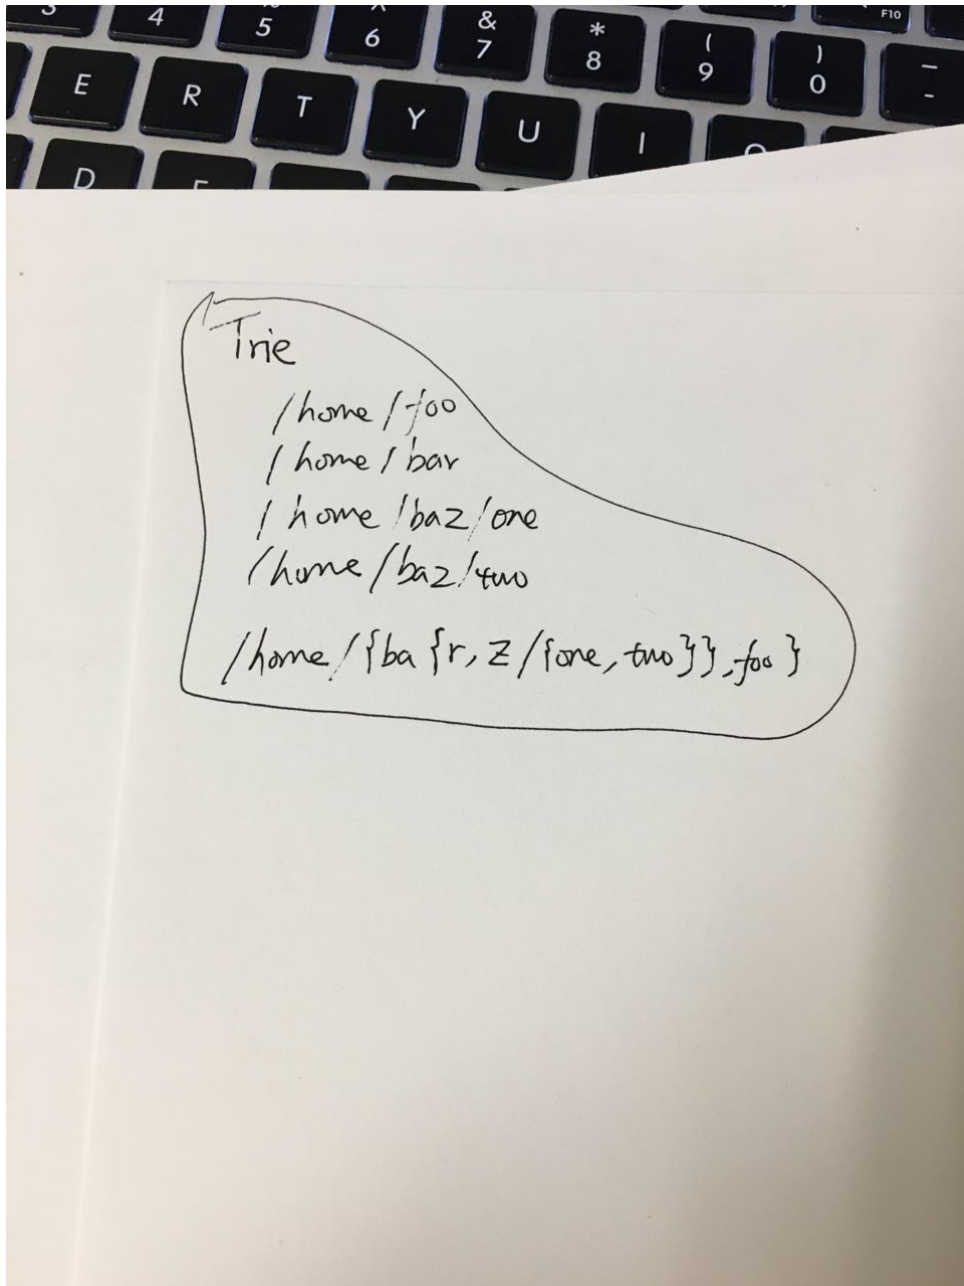 3 4 5 ^ 6 & 7 * 8 ( 9 ) 0 — - F10
E R T Y U I O
D F
Trie
/home/foo
/home/bar
/home/baz/one
/home/baz/two
/home/{ba{r,z/{one,two}},foo}